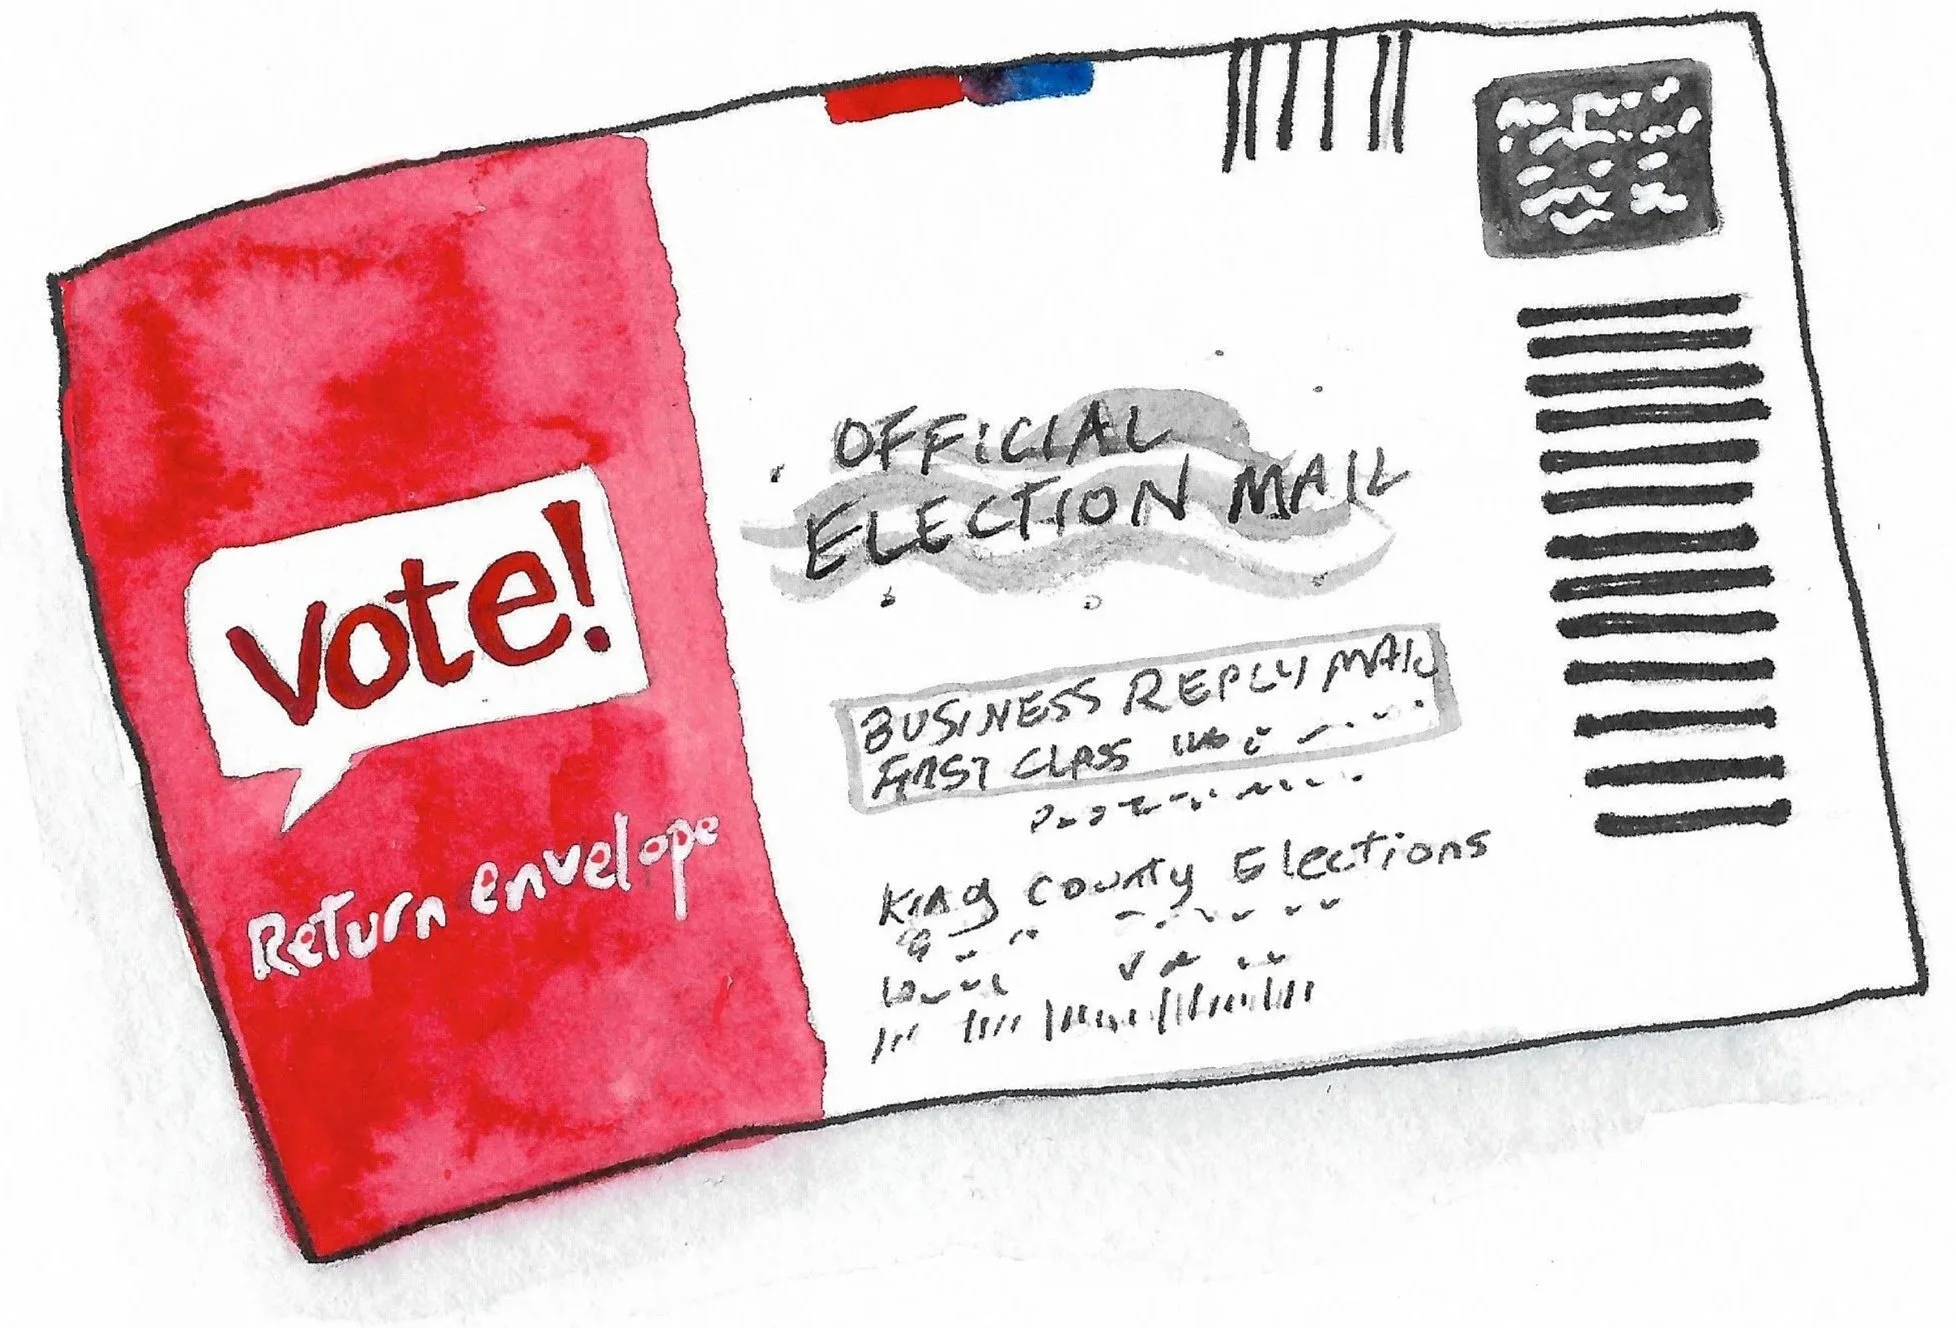 vote!
Return envelope
OFFICIAL
ELECTION MAIL
BUSINESS REPLY MAIL
FIRST CLASS
King County Elections